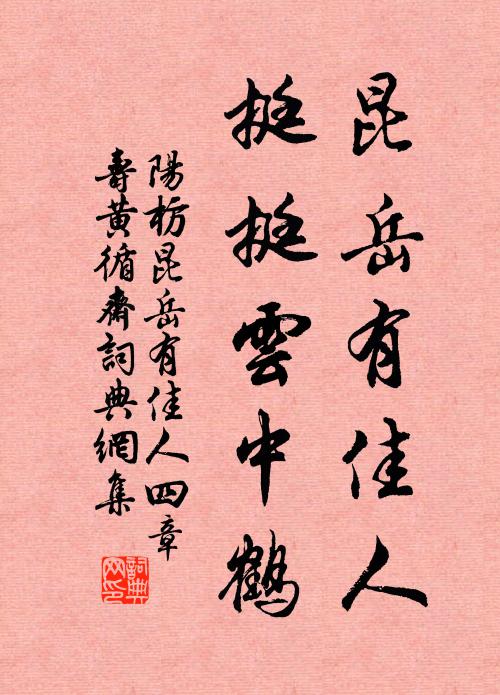 昆岳有佳人
挺挺雲中鶴
陽枋昆岳有佳人四章
壽黃循齋詞典網集
詞典
网印